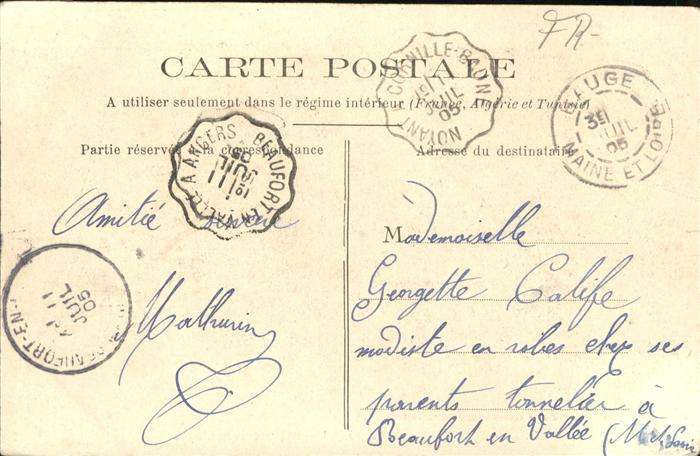 FR-
CARTE POSTALE
A utiliser seulement dans le régime intérieur (France, Algérie et Tunisie)
Partie réservée à la correspondance
Adresse du destinataire
CORNILLE-BAUN
JUIL
05
NOYANT
BAUGE
3E
JUIL
05
MAINE ET LOIRE
BEAUFORT-EN-VALLEE A ANGERS
11
JUIL
05
BEAUFORT-EN-
11
JUIL
05
Amitié sincère
Mathurin
Mademoiselle
Georgette Calife
modiste en robes chez ses
parents tonnelier à
Beaufort en Vallée (M et Loire